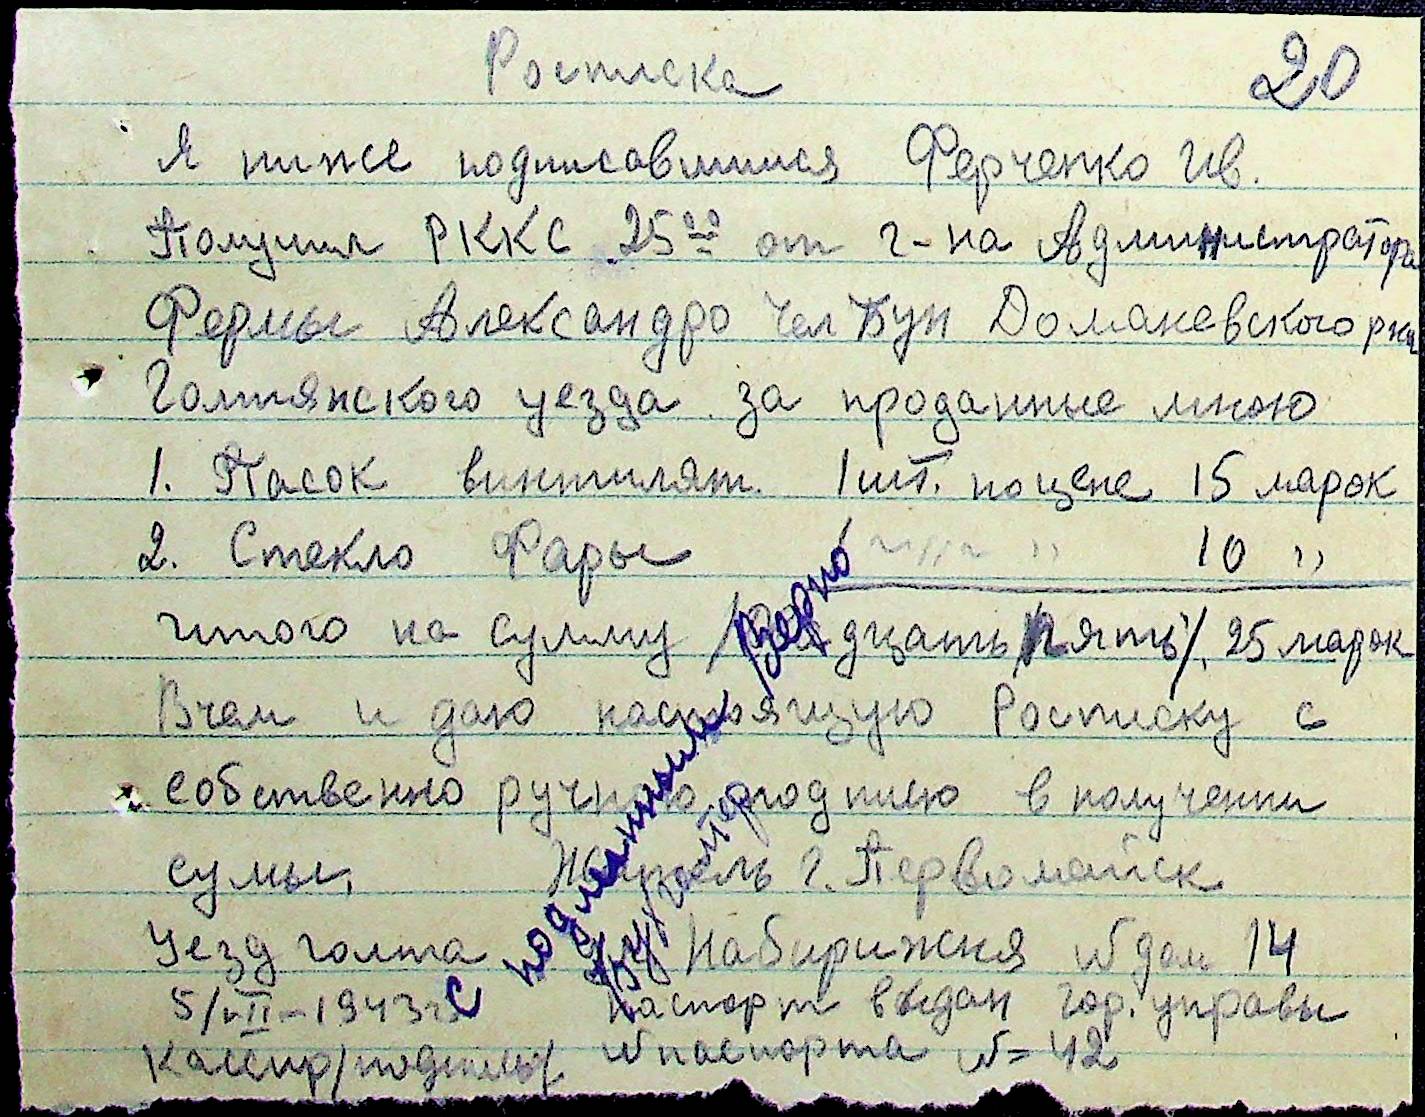 Росписка 20
Я ниже подписавшися Ферченко Ив.
Получил РККС 25 00 от г-на Администратора
Фермы Александро Чел Бун Доманевского рна
Голтянского уезда за проданные мною
1. Пасок винтилят. 1 шт. по цене 15 марок
2. Стекло Фары 1 " " 10 "
Итого на сумму /Двадцать пять/, 25 марок
Вчем и даю настоящую Росписку с
собственно ручною подписю в получении
сумы, Житель г. Первомайск
Уезд голта Набирижня № дом 14
5/VII-1943г. Паспорт выдан гор. управы
Кассир/подпись/ № паспорта №= 42
С подленным верно
Бухгалтер